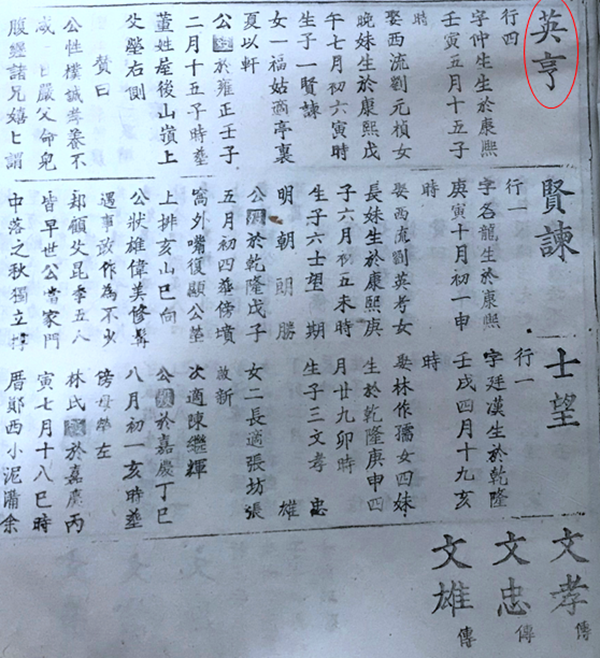 英亨
行四
字仲生生於康熙
壬寅五月十五子
時
娶西流劉元楨女
晚妹生於康熙戊
午七月初六寅時
生子一賢諫
女一福姑適亭裏
夏以軒
公於雍正壬子
二月十五午時葬
董姓屋後山嶺上
父塋右側
贊曰
公性樸誠孝養不
咸一日嚴父命兒
腹壓諸兄嬉匕謂
賢諫
行一
字名龍生於康熙
庚寅十月初一申
時
娶西流劉英考女
長妹生於康熙庚
子六月初五未時
生子六士望 期
明 朝 朗 勝
公於乾隆戊子
五月初四葬傍墳
窩外嘴復顯公塋
上排亥山巳向
公狀雄偉美修髯
遇事敢作為不少
郤顧父昆季五人
皆早世公當家門
中落之秋獨立撐
士望
行一
字廷漢生於乾隆
壬戌四月十九亥
時
娶林作孺女四妹
生於乾隆庚申四
月廿九卯時
生子三文孝 忠
雄
女二長適張坊張
啟新
次適陳繼輝
公於嘉慶丁巳
八月初一亥時葬
傍母塋左
林氏於嘉慶丙
寅七月十八巳時
厝鄖西小泥溝余
文孝 傳
文忠 傳
文雄 傳